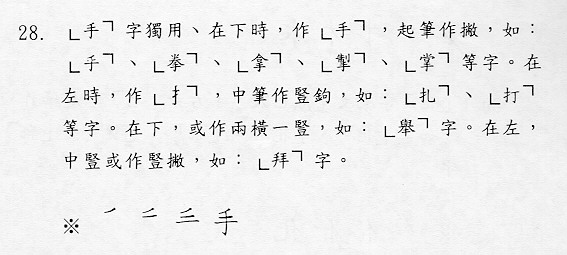 28. ﹂手﹁字獨用、在下時，作﹂手﹁，起筆作撇，如：
﹂手﹁、﹂拳﹁、﹂拿﹁、﹂掣﹁、﹂掌﹁等字。在
左時，作﹂扌﹁，中筆作豎鉤，如：﹂扎﹁、﹂打﹁
等字。在下，或作兩橫一豎，如：﹂舉﹁字。在左，
中豎或作豎撇，如：﹂拜﹁字。
※ ㇒ 二 三 手